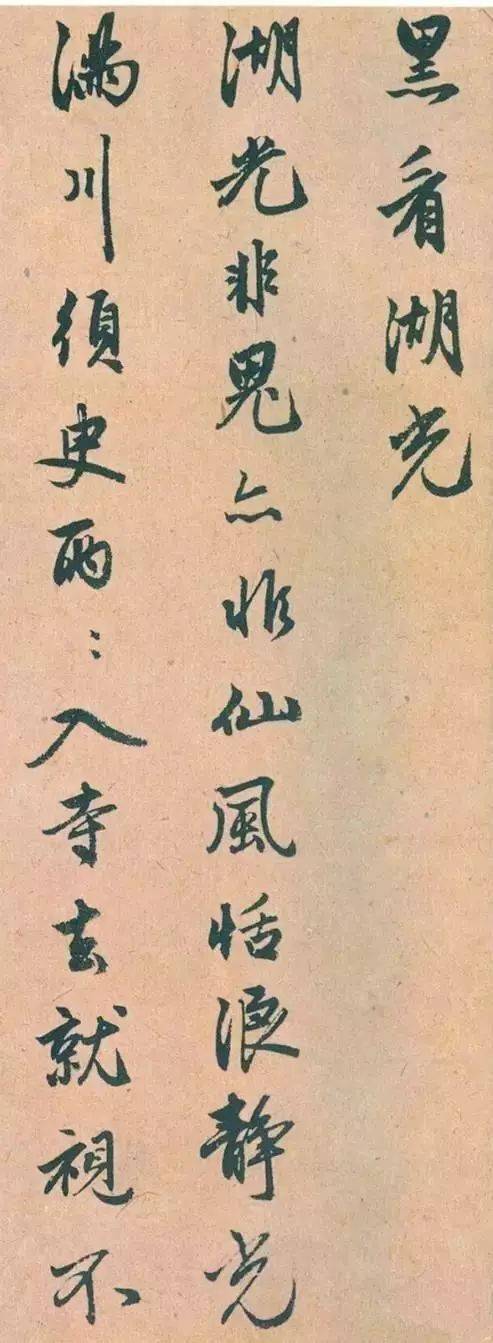 黑看湖光
湖光非鬼亦非仙風恬浪静光
滿川須臾兩〻入寺去就視不